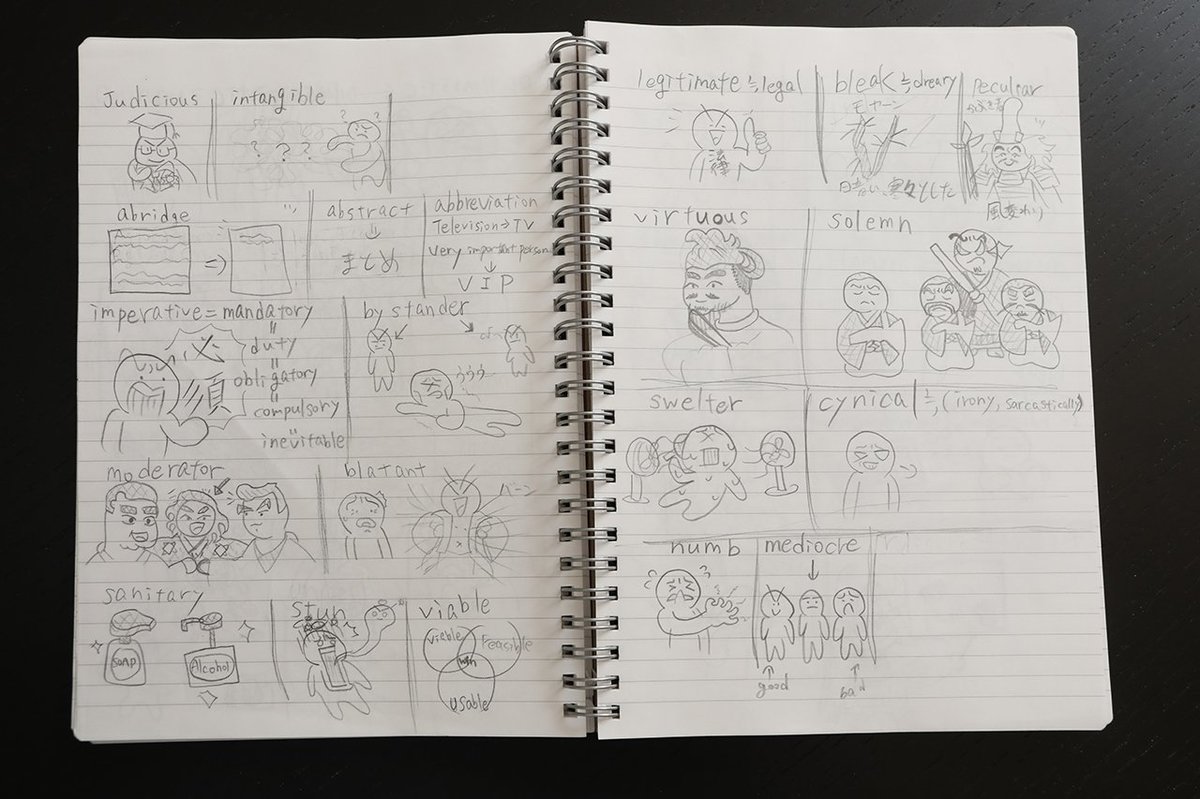 Judicious
intangible
? ? ?
abridge
abstract
まとめ
abbreviation
Television⇒TV
Very important person
VIP
imperative = mandatory
=
duty
=
obligatory
=
compulsory
=
inevitable
必
須
by stander
ううう
moderator
blatant
バーン
sanitary
SOAP
Alcohol
stun
viable
viable
Feasible
usable
legitimate ≒ legal
法律
bleak ≒ dreary
モヤーン
暗い、寒々とした
Peculiar
かぶき者
風変わり
virtuous
solemn
swelter
cynical ≒ (irony, sarcastically)
numb
mediocre
good
bad